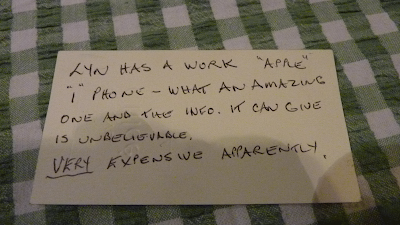 LYN HAS A WORK "APPLE"
"I" PHONE – WHAT AN AMAZING
ONE AND THE INFO. IT CAN GIVE
IS UNBELIEVABLE.
VERY EXPENSIVE APPARENTLY.